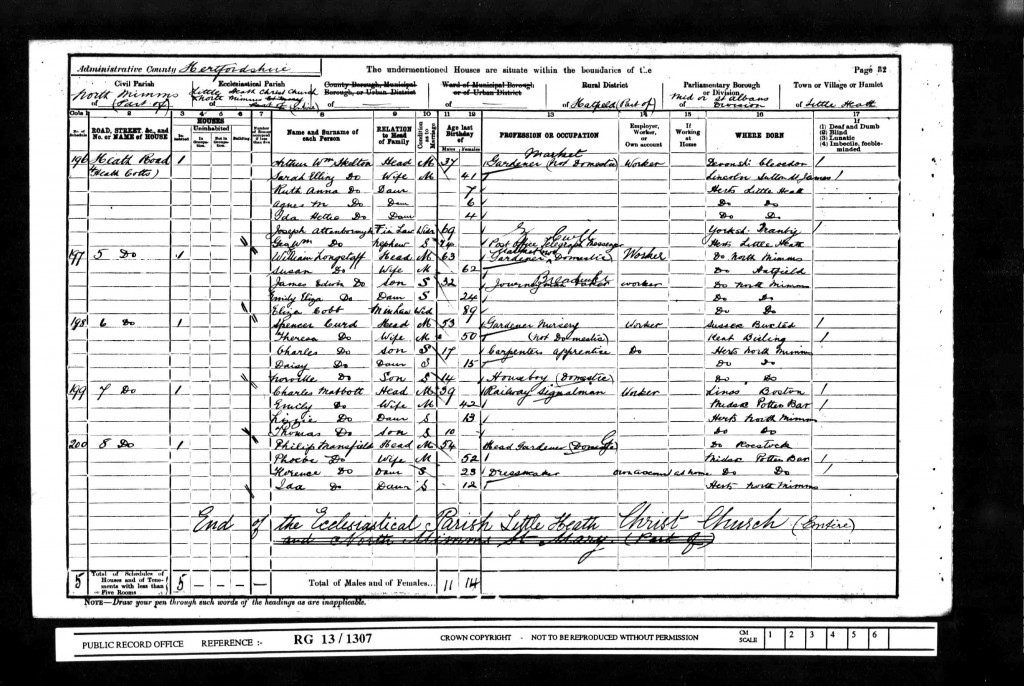 Administrative County Hertfordshire The undermentioned Houses are situate within the boundaries of the Page 32
Civil Parish Ecclesiastical Parish County Borough, Municipal Borough, or Urban District Ward of Municipal Borough or of Urban District Rural District Parliamentary Borough or Division Town or Village or Hamlet
of North Mimms (Part of) of Little Heath Christ Church of of of Hatfield (Part of) of Mid or St Albans Division of Little Heath
Cols 1 2 3 4 5 6 7 8 9 10 11 12 13 14 15 16 17
No. of Schedule ROAD, STREET, &c., and No. or NAME of HOUSE HOUSES In-habited Uninhabited In Occupation Not in Occupation Building Name and Surname of each Person RELATION to Head of Family Condition as to Marriage Age last Birthday of Males Females PROFESSION OR OCCUPATION Employer, Worker, or Own account If Working at Home WHERE BORN (1) Deaf and Dumb (2) Blind (3) Lunatic (4) Imbecile, feeble-minded
196 Heath Road 1 Arthur Wm Skelton Head M 37 Market Gardener (not Domestic) Worker Clevedon
Heath Cotts) Sarah Do Wife M 41 Lincoln Sutton St James
Ruth Anna Do Daur 7 Herts Little Heath
Agnes M Do Daur 6 Do Do
Ida Hettie Do Daur 4 Do Do
Joseph Attenborough F in Law Widr 69 Yorksh.
Geo Wm Do Nephew S 24 Post Office Telegraph Messenger Herts Little Heath
197 5 Do 1 William Longstaff Head M 63 Gardener Domestic Worker Do North Mimms
Susan Do Wife M 62 Do Hatfield
James Edwin Do Son S 32 Journeyman Baker Worker Do North Mimms
Emily Eliza Do Daur S 24 Do Do
Eliza Cobb M in Law Wid 89 Do Do
198 6 Do 1 Spencer Curd Head M 53 Gardener Nursery Worker Sussex Buxted
Theresa Do Wife M 50 (not Domestic) Kent Birling
Charles Do Son S 17 Carpenters apprentice Do Herts North Mimms
Daisy Do Daur S 15 Do Do
Norville Do Son S 14 Houseboy (Domestic) Do Do
199 7 Do 1 Charles Mabbott Head M 39 Railway Signalman Worker Lincs Boston
Emily Do Wife M 42 Middsx Potters Bar
Lizzie Do Daur S 13 Herts North Mimms
Thomas Do Son S 10 Do Do
200 8 Do 1 Philip Mansfield Head M 54 Head Gardener Domestic Do Roestock
Phoebe Do Wife M 52 Middsx Potters Bar
Florence Do Daur S 23 Dressmaker Own account at home Do Do
Ida Do Daur S 12 Herts North Mimms
End of the Ecclesiastical Parish Little Heath Christ Church (Entire)
and North Mimms St Mary (Part of)
5 Total of Schedules of Houses and of Tenements with less than Five Rooms 5 – – – – Total of Males and of Females... 11 14
NOTE—Draw your pen through such words of the headings as are inapplicable.
PUBLIC RECORD OFFICE REFERENCE :- RG 13 / 1307 CROWN COPYRIGHT - NOT TO BE REPRODUCED WITHOUT PERMISSION CM SCALE 1 2 3 4 5 6